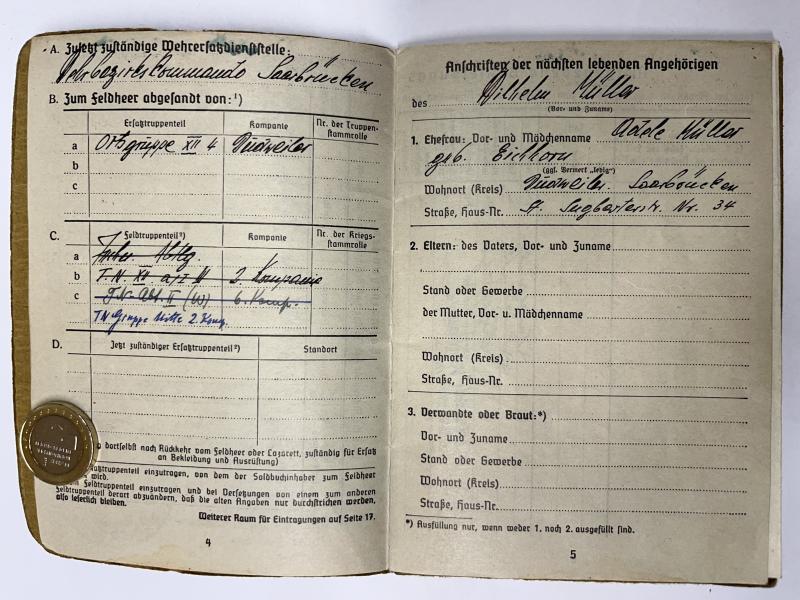 A. Zuletzt zuständige Wehrersatzdienststelle:
Wehrbezirkskommando Saarbrücken
B. Zum Feldheer abgesandt von:¹)
Ersatztruppenteil Kompanie Nr. der Truppen-
stammrolle
a Ortsgruppe XII 4 Dudweiler
b
c
C. Feldtruppenteil²) Kompanie Nr. der Kriegs-
stammrolle
a
b T.N. XII III 2. Kompanie
c T.N. Abt. II (W) 6. Komp.
TN Gruppe Mitte 2 Komp.
D. Jetzt zuständiger Ersatztruppenteil³) Standort
dortselbst nach Rückkehr vom Feldheer oder Lazarett, zuständig für Ersatz
an Bekleidung und Ausrüstung)
einzutragen, von dem der Soldbuchinhaber zum Feldheer
wird.
Feldtruppenteil einzutragen und bei Versetzungen von einem zum anderen
Feldtruppenteil derart abzuändern, daß die alten Angaben nur durchstrichen werden,
also leserlich bleiben.
Weiterer Raum für Eintragungen auf Seite 17.
4
Anschriften der nächsten lebenden Angehörigen
des Wilhelm Müller
(Vor- und Zuname)
1. Ehefrau: Vor- und Mädchenname Adele Müller
geb. Eichhorn
(ggf. Vermerk „ledig")
Wohnort (Kreis) Dudweiler Saarbrücken
Straße, Haus-Nr. St. Ingberterstr. Nr. 34
2. Eltern: des Vaters, Vor- und Zuname
Stand oder Gewerbe
der Mutter, Vor- u. Mädchenname
Wohnort (Kreis)
Straße, Haus-Nr.
3. Verwandte oder Braut:*)
Vor- und Zuname
Stand oder Gewerbe
Wohnort (Kreis)
Straße, Haus-Nr.
*) Ausfüllung nur, wenn weder 1. noch 2. ausgefüllt sind.
5